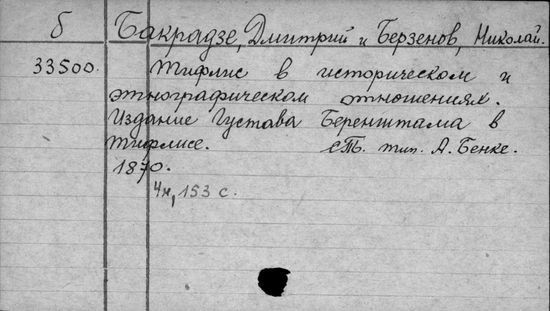 Б
Бакрадзе, Дмитрий и Берзенов, Николай.
33500.
Тифлис в историческом и
этнографическом отношениях.
Издание Густава Беренштама в
Тифлисе. СПб. тип. А. Бенке.
1870.
4н, 153 с.